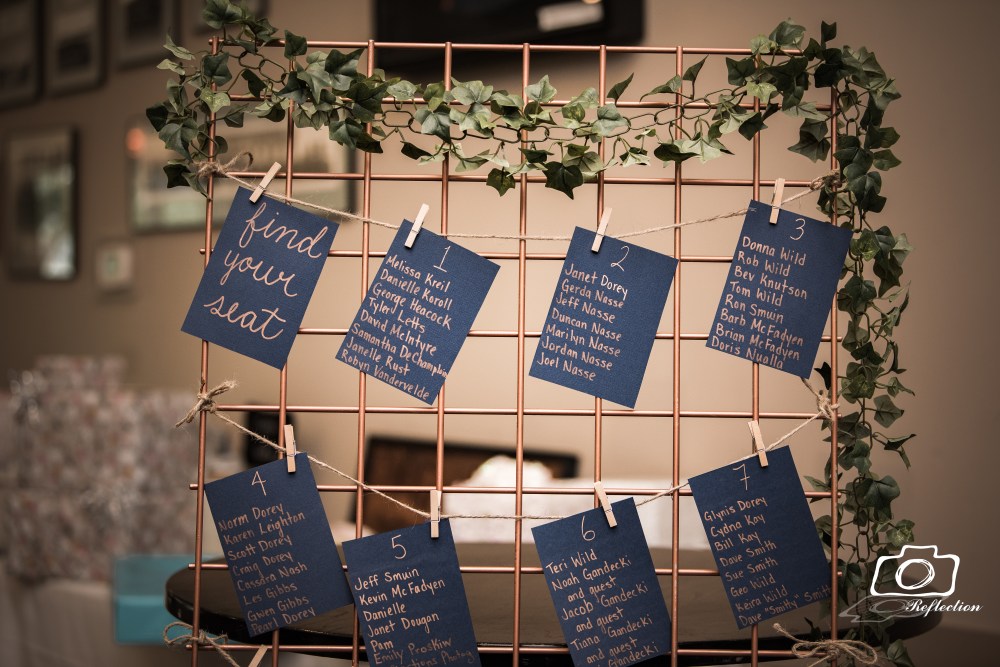 find
your
seat
1
Melissa Kreil
Danielle Koroll
George Heacock
Tyler Letts
David McIntyre
Samantha DeChamplain
Janelle Rust
Robyn Vandervelde
2
Janet Dorey
Gerda Nasse
Jeff Nasse
Duncan Nasse
Marilyn Nasse
Jordan Nasse
Joel Nasse
3
Donna Wild
Rob Wild
Bev Knutson
Tom Wild
Ron Smuin
Barb McFadyen
Brian McFadyen
Doris Nualla
4
Norm Dorey
Karen Leighton
Scott Dorey
Craig Dorey
Cassdra Nash
Les Gibbs
Gwen Gibbs
Pearl Dorey
5
Jeff Smuin
Kevin McFadyen
Danielle
Janet Dougan
Pam
Emily Proskiw
Photog
6
Teri Wild
Noah Gandecki
and guest
Jacob Gandecki
and guest
Tiana Gandecki
and guest
Rob Gandecki
7
Glynis Dorey
Cydna Kay
Bill Kay
Dave Smith
Sue Smith
Geo Wild
Keira Wild
Dave "Smity" Smith
Reflection